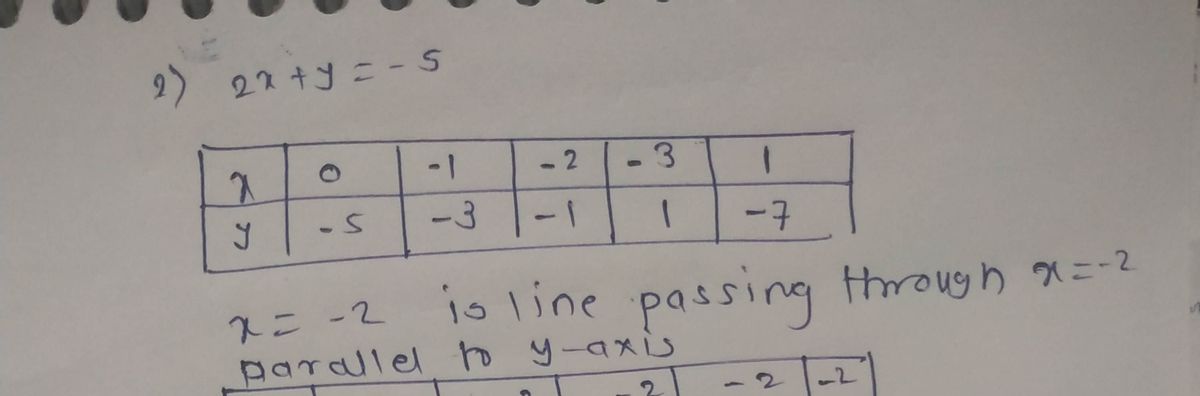 2) 2x+y=-5
x 0 -1 -2 -3 1
y -5 -3 -1 1 -7
x=-2 is line passing through x=-2
parallel to y-axis
-2 -2 -2